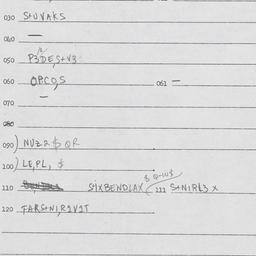 030 S+UVAKS
040 —
050 P3DE,S+V3
060 OPCO,S 061 —
—
070
080
090) NU22 $ QR
100) LE,PL, $
110 SIXBENDLAX 111 S+NIRL3 X
120 FARS+NI,R2V2T